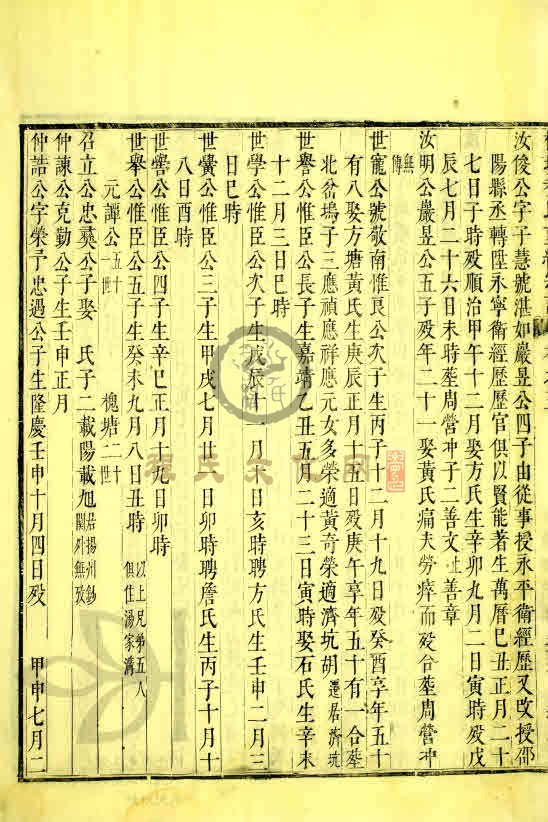 汝俊公字子慧號湛如巖昱公四子由從事授永平衛經歷又攺授邵
陽縣丞轉陞永寧衛經歷歷官俱以賢能著生萬曆己丑正月二十
七日子時歿順治甲午十二月娶方氏生辛卯九月二日寅時歿戊
辰七月二十六日未時葬周營冲子二善文止善章
汝明公巖昱公五子歿年二十一娶黃氏痛夫勞瘁而歿合葬周營冲
無傳
世寵公號敬南惟良公次子生丙子十二月十九日歿癸酉享年五十
有八娶方塘黃氏生庚辰正月十五日歿庚午享年五十有一合葬
北岔塢子三應禎應祥應元女多榮適黃奇榮適濟坑胡遷居濟坑
世譽公惟臣公長子生嘉靖乙丑五月二十三日寅時娶石氏生辛未
十二月三日巳時
世學公惟臣公次子生戊辰十一月 日亥時聘方氏生壬申二月三
日巳時
世黌公惟臣公三子生甲戌七月廿 日卯時聘詹氏生丙子十月十
八日酉時
世嚳公惟臣公四子生辛巳正月十九日卯時
世舉公惟臣公五子生癸未九月八日丑時以上兄弟五人俱住湯家濟
元譚公五十一世 槐塘二十世
召立公忠藀公子娶 氏子二載陽載旭居揚州鈔關外無攷
仲諫公克勤公子生壬申正月
仲誥公字榮予忠遇公子生隆慶壬申十月四日歿 甲申七月二